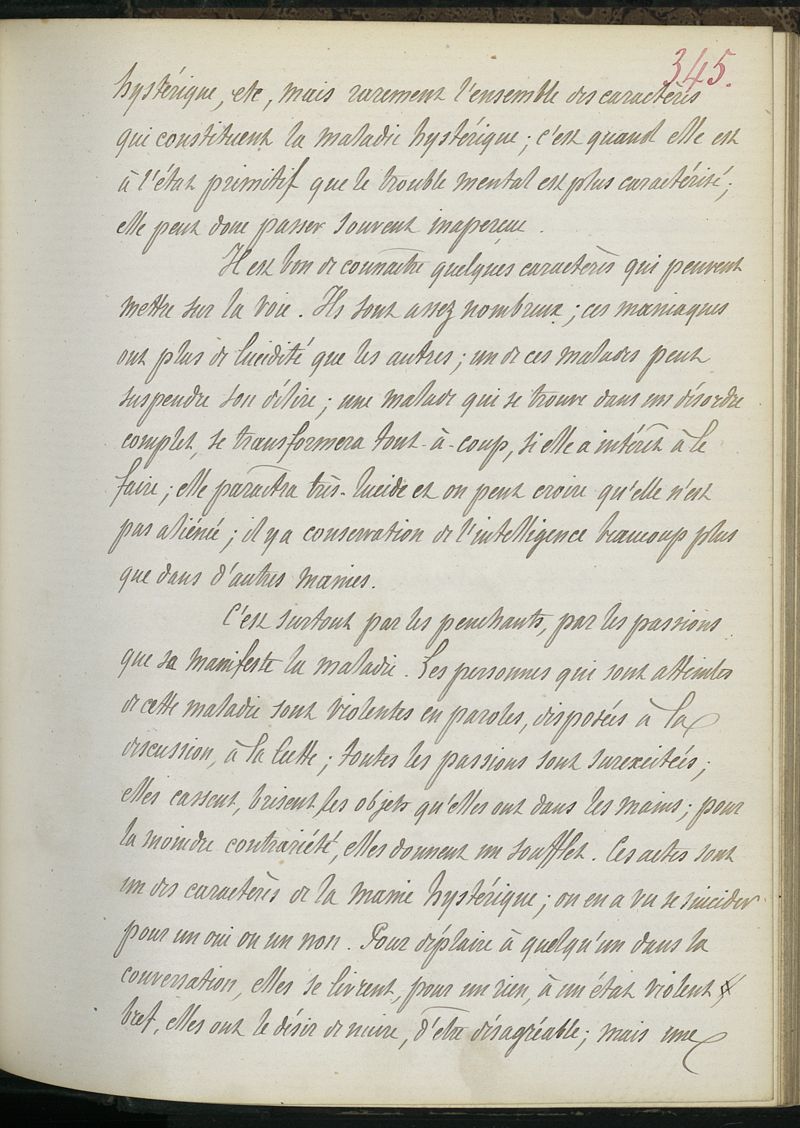 345.
hystérique, etc, mais rarement l'ensemble des caractères
qui constituent la maladie hystérique ; c'est quand elle est
à l'état primitif que le trouble mental est plus caractérisé ;
elle peut donc passer souvent inaperçue .
Il est bon de connaître quelques caractères qui peuvent
mettre sur la voie . Ils sont assez nombreux ; ces maniaques
ont plus de lucidité que les autres ; un de ces malades peut
suspendre son délire ; une malade qui se trouve dans un désordre
complet, se transformera tout-à-coup, si elle a intérêt à le
faire ; elle paraîtra très-lucide et on peut croire qu'elle n'est
pas aliénée ; il y a conservation de l'intelligence beaucoup plus
que dans d'autres manies.
C'est surtout par les penchants, par les passions
que se manifeste la maladie . Les personnes qui sont atteintes
de cette maladie sont violentes en paroles, disposées à la
discussion, à la lutte ; toutes les passions sont surexcitées ;
elles cassent, brisent les objets qu'elles ont dans les mains ; pour
la moindre contrariété, elles donnent un soufflet . Ces actes sont
un des caractères de la manie hystérique ; on en a vu se suicider
pour un oui ou un non . Pour déplaire à quelqu'un dans la
conversation, elles se livrent, pour un rien, à un état violent
bref, elles ont le désir de nuire, d'être désagréable ; mais une